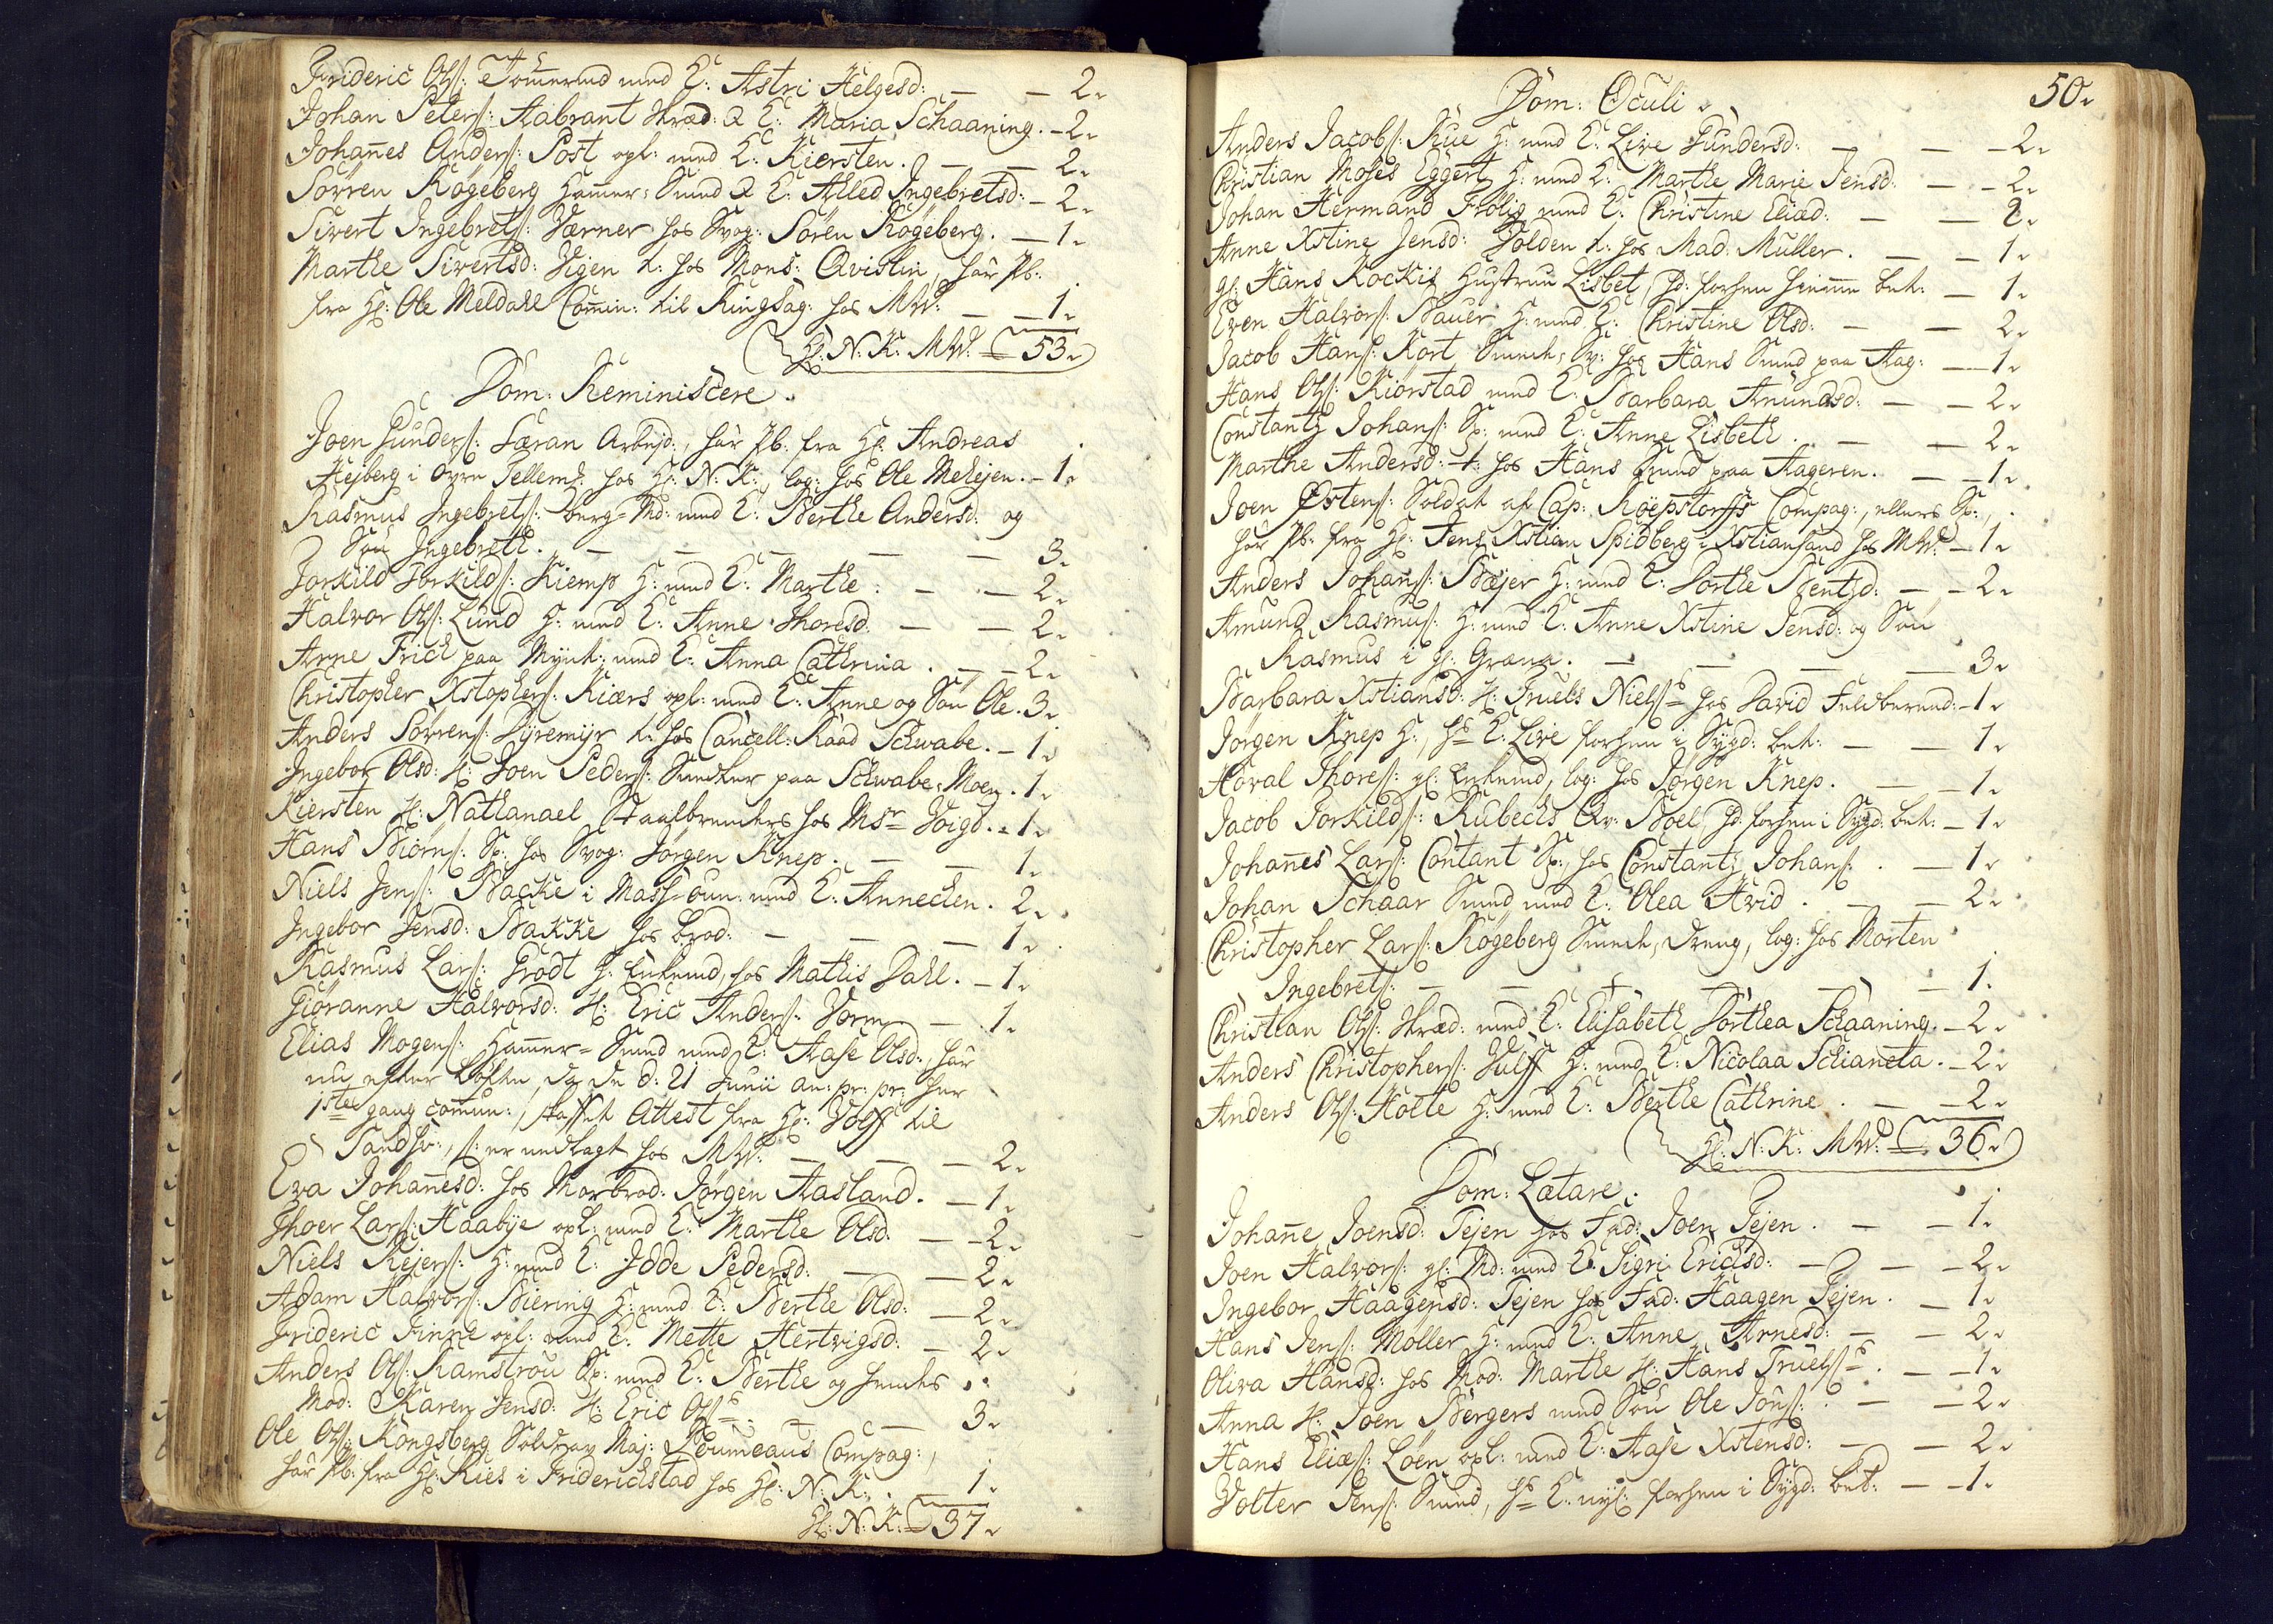 Frideric Ols: Tømerud med K: Astri Helgesd: — — 2.
Johan Peters: Aabrant Skræd: & K: Maria Schaaning. — 2.
Johañes Anders: Post opl: med K: Kiersten. — — 2.
Sørren Køgeberg Ham̃er-Smed & K: Alled Ingebretsd: — 2.
Sivert Ingebrets: Værner hos Svog: Søren Køgeberg. — 1.
Marthe Sivertsd: Vigen t: hos Mons: Qvistin, har Pb:
fra H: Ole Meldahl Com̃in: til Ringsag: hos MW: — — 1.
H: N: K: MW: = 53.
Dom: Reminiscere.
Joen Gunders: Særan Arbejd:, har Pb: fra H: Andreas
Hejberg i øvre Tellem: hos H: N: K:, log: hos Ole Mehejen. — 1.
Rasmus Ingebrets: berg-Md: med K: Berthe Andersd: og
Søn Ingebreth. — — — — — 3.
Torkild Torkilds: Kiemp H: med K: Marthe: — — 2.
Halvor Ols: Lund H: med K: Anne Thoresd: — — 2.
Arne Frich paa Mynt: med K: Anna Cathrina. — — 2.
Christopher Xstophers: Kiærs opl: med K: Anne og Søn Ole. 3.
Anders Sørrens: Dyremyr t: hos Cancell: Raad Schwabe. — 1.
Ingebor Olsd: H: Joen Peders: Snedker paa Schwabe-Moen. 1.
Kiersten H: Nathanael Staalbrenders hos Msr Voigd. — 1.
Hans Biørns: Sp: hos Svog: Jørgen Knep. — — 1.
Niels Jens: Backe i Mass-bun: med K: Annechen. 2.
Ingebor Jensd: Bakke hos Brod: — — — 1.
Rasmus Lars: Grodt H: Enkemd, hos Mathis Dahl. — 1.
Giøranne Halvorsd: H: Eric Anders: Vorm — — 1.
Elias Mogens: Ham̃er-Smed med K: Aase Olsd:, har
nu efter Løfte, da de d: 21 Junii an: pr: pr: her
1ste gang com̃un:, skaffet Attest fra H: Wolff til
Sandsv:, s: er nedlagt hos MW: — — — 2.
Eva Johañesd: hos Morbrod: Jørgen Aasland. — 1.
Thoer Lars: Haabye opl: med K: Marthe Olsd. — — 2.
Niels Rejers: H: med K: Idde Pedersd: — — 2.
Adam Halvors: Biering H: med K: Berthe Olsd: — 2.
Frideric Finne opl: med K: Mette Hertvigsd: — 2.
Anders Ols: Ramstrou Sp: med K: Berthe og hendes
Mod: Karen Jensd: H: Eric Ols: — — 3.
Ole Ols: Kongsberg Sold: av Maj: Loumeaus Compag:,
har Pb: fra H: Ries i Friderichstad hos H: N: K:. — 1.
H: N: K: = 37.
50.
Dom: Oculi.
Anders Jacobs: Rue H: med K: Live Gundersd: — — — 2.
Christian Moses Eggert H: med K: Marthe Marie Jensd: — — 2.
Johan Hermand Frølig med K: Christine Eliæd: — — 2.
Anne Xstine Jensd: Tolden t: hos Mad: Muller. — — 1.
gl: Hans Rockis Hustrue Lisbet, Hd: forhen hieme bet: — 1.
Even Halvors: Bauer H: med K: Christine Olsd: — — 2.
Jacob Hans: Kort Smede-Sv: hos Hans Smed paa Aag: — 1.
Hans Ols: Kiørstad med K: Barbara Anundsd: — — 2.
Constantz Johans: Sp: med K: Anne Lisbeth. — — 2.
Marthe Andersd: t: hos Hans Smed paa Aageren. — — 1.
Joen Østens: Soldat af Cap: Røepstorffs Compag:, ellers Sp:,
har Pb: fra H: Jens Xstian Spidberg i Xstiansand hos MW: — 1.
Anders Johans: Bejer H: med K: Dorthe Bentzd: — — 2.
Amund Rasmus: H: med K: Anne Xstine Jensd: og Søn
Rasmus i gl: Graven. — — — — 3.
Barbara Xstiansd: H: Truels Niels: hos David Feldberend: — 1.
Jørgen Knep H:, hs K: Live forhen i Sygd: bet: — — 1.
Hoval Thores: gl: Enkemd, log: hos Jørgen Knep. — — 1.
Jacob Torkilds: Rubechs Qv: Boel, Hd: forhen i Sygd: bet: — 1.
Johañes Lars: Contant Sp: hos Constantz Johans: . — 1.
Johan Schaar Smed med K: Olea Hvid. — — 2.
Christopher Lars: Køgeberg Smede-dreng, log: hos Morten
Ingebrets: — — — — — — 1.
Christian Ols: Skræd: med K: Elisabeth Dorthea Schaaning. — 2.
Anders Christophers: Wulff H: med K: Nicolaa Schaneta. — 2.
Anders Ols: Holte H: med K: Berthe Cathrine. — — 2.
H: N: K: MW: = 36.
Dom: Lætare.
Johañe Joensd: Tejen hos Fad: Joen Tejen. — — 1.
Joen Halvors: gl: Md: med K: Sigri Erichsd: — — — 2.
Ingebor Haagensd: Tejen hos Fad: Haagen Tejen. — 1.
Hans Jens: Møller H: med K: Anne Arnesd: — — 2.
Oliva Hansd: hos Mod: Marthe H: Hans Truels:. — — 1.
Anna H: Joen Bergers med Søn Ole Jons:. — — 2.
Hans Eliæs: Løen opl: med K: Aase Xstensd: — — 2.
Volter Jens: Smed, hs K: nyl: forhen i Sygd: bet: — — 1.